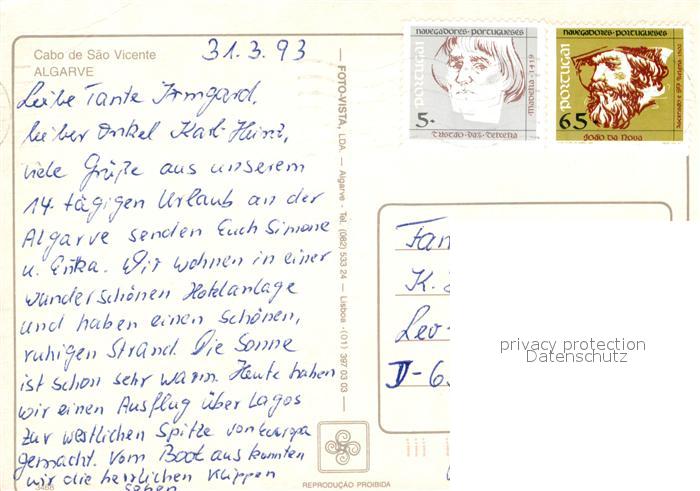 Cabo de São Vicente
ALGARVE
31.3.93
Liebe Tante Irmgard,
lieber Onkel Karl-Heinz,
viele Grüße aus unserem
14-tägigen Urlaub an der
Algarve senden Euch Simone
u. Erika. Wir wohnen in einer
wunderschönen Hotelanlage
und haben einen schönen,
ruhigen Strand. Die Sonne
ist schon sehr warm. Heute haben
wir einen Ausflug über Lagos
zur westlichen Spitze von Europa
gemacht. Vom Boot aus konnten
wir die herrlichen Klippen
sehen
3488
FOTO-VISTA, LDA. — Algarve - Tel. (082) 533 24 — Lisboa - (01) 397 03 03
REPRODUÇÃO PROIBIDA
NAVEGADORES · PORTUGUESES
PORTUGAL
5.
MADEIRA · 1419
TRISTÃO · VAZ · TEIXEIRA
NAVEGADORES · PORTUGUESES
PORTUGAL
65.
JOÃO DA NOVA
Fam
K.
Leo-
D-6
privacy protection
Datenschutz